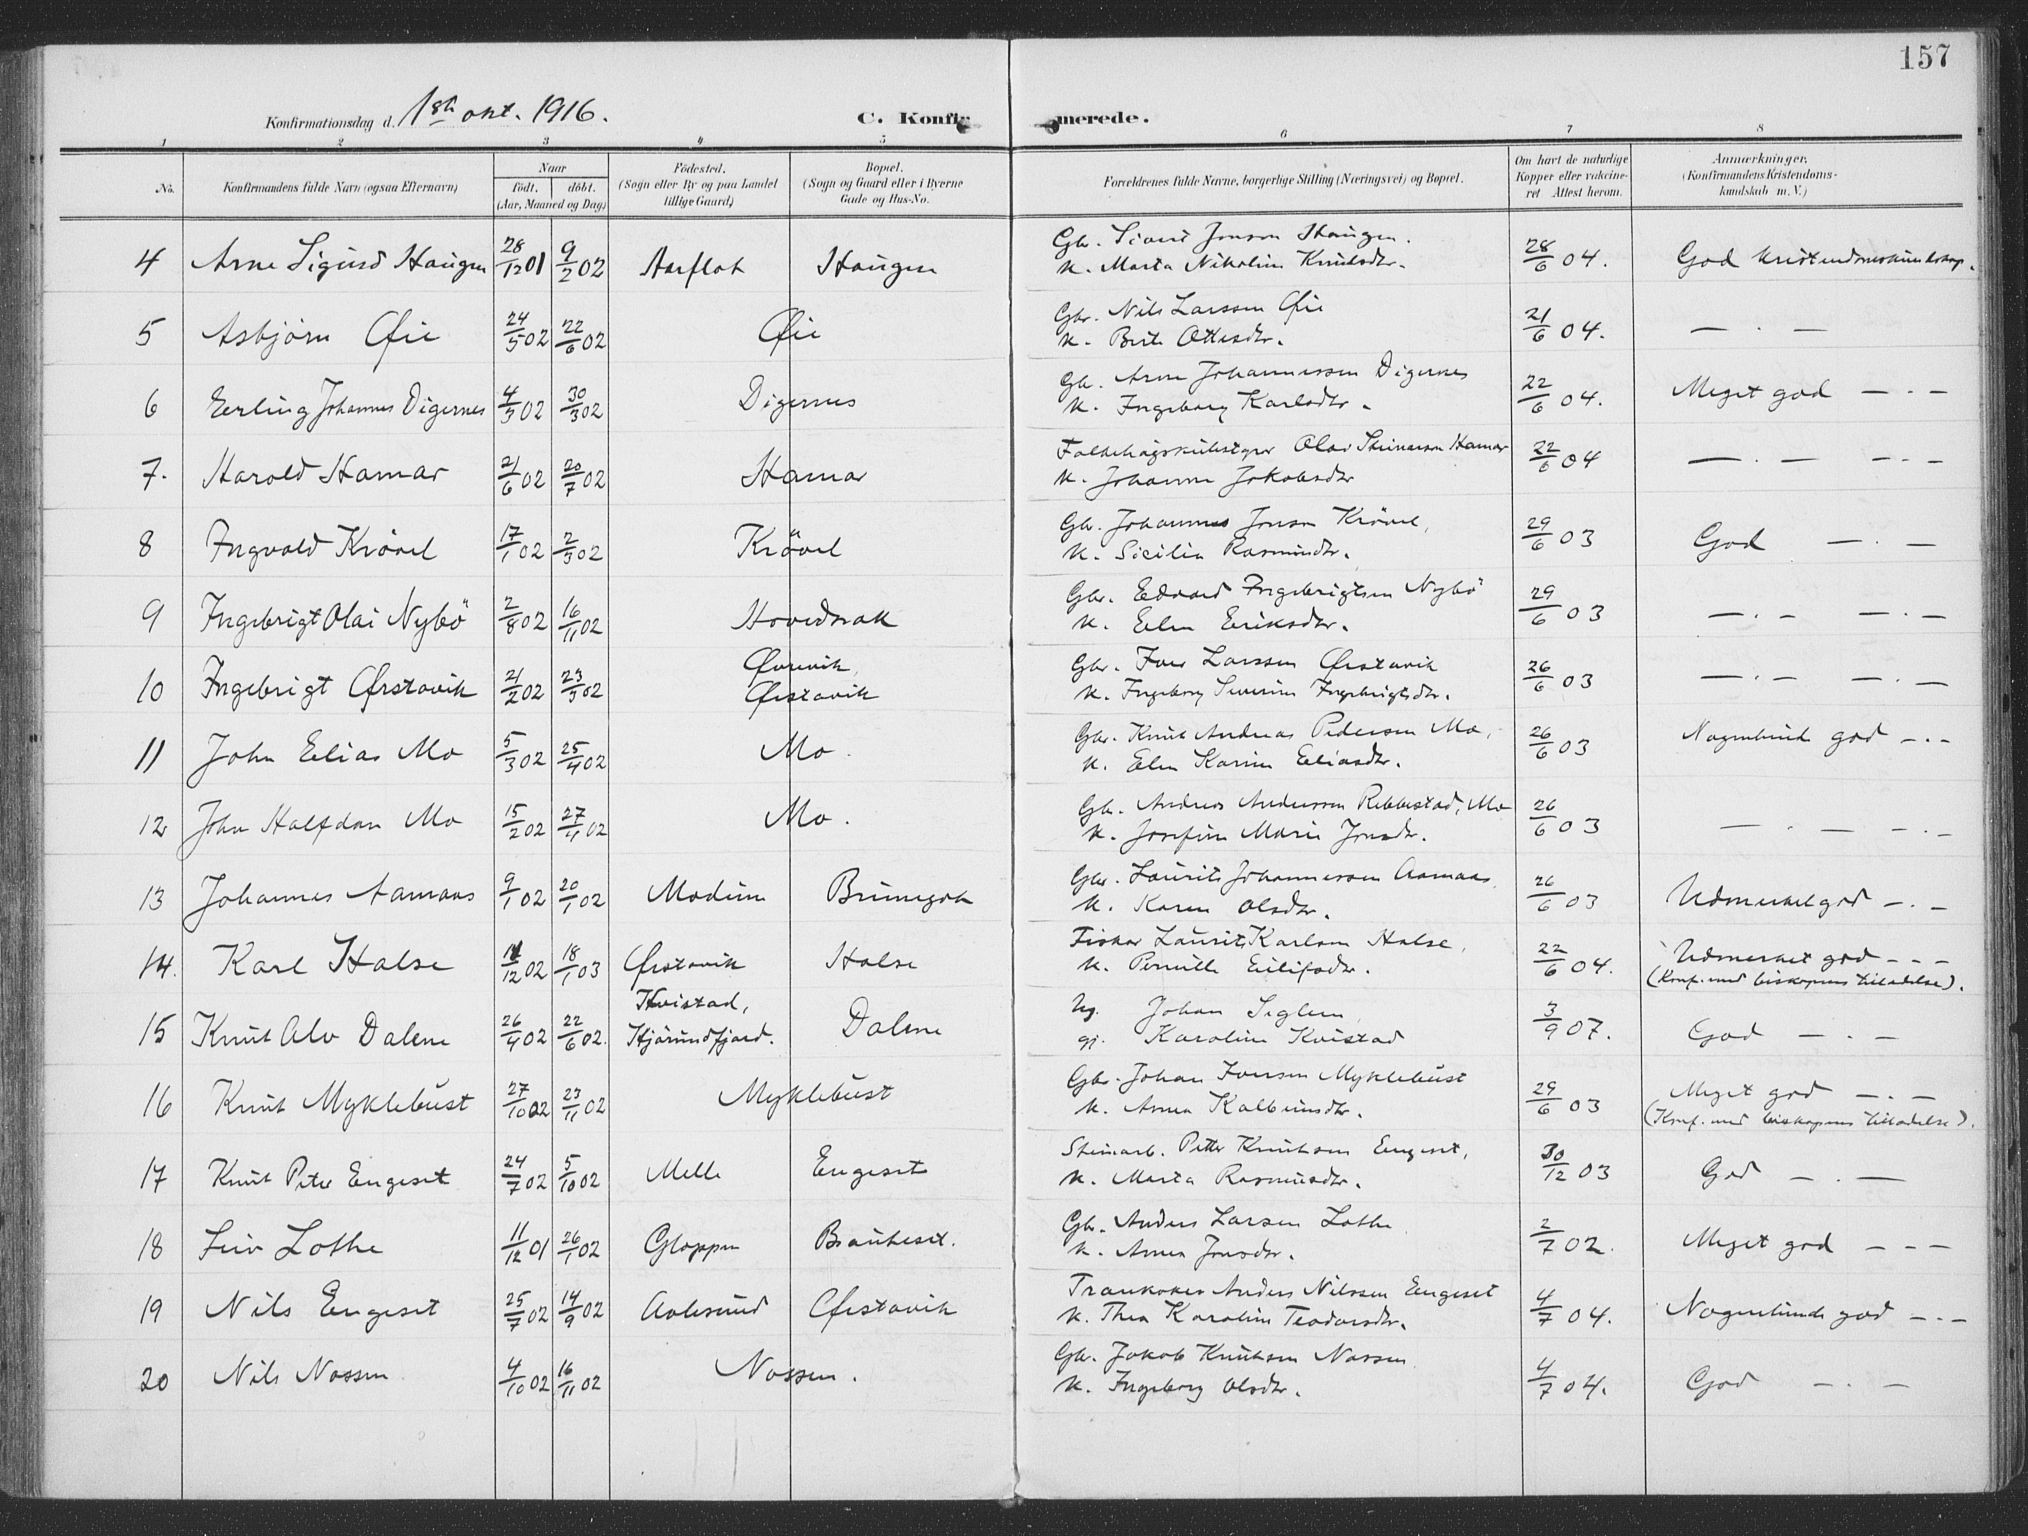 157
Konfirmationsdag d. 1ste okt. 1916.
C. Konfirmerede.
1 2 3 4 5 6 7 8
No. Konfirmandens fulde Navn (ogsaa Efternavn) Naar födt. döbt. (Aar, Maaned og Dag) Födested. (Sogn eller By og paa Landet tillige Gaard) Bopæl. (Sogn og Gaard eller i Byerne Gade og Hus-No. Forældrenes fulde Navne, borgerlige Stilling (Næringsvei) og Bopæl. Om havt de naturlige Kopper eller vaccineret Attest herom. Anmærkninger. (Konfirmandens Kristendomskundskab m. V.)
4 Arne Sigurd Haugen 28/12 01 9/2 02 Aarflot Haugen Gbr. Sivert Jonson Haugen. K. Marta Nikoline Knutsdtr. 28/6 04. God kristendomskundskap.
5 Asbjörn Øie 24/5 02 22/6 02 Øie Gbr. Nils Larssen Øie K. Berte Ottesdtr. 21/6 04. — . —
6 Erling Johannes Digernes 4/3 02 30/3 02 Digernes Gb. Arne Johannessen Digernes K. Ingeborg Karlsdtr. 22/6 04. Meget god — . —
7. Harold Hamar 21/6 02 20/7 02 Hamar Olav Steinarson Hamar K. Johanne Jakobsdtr 22/6 04 — . — — . —
8 Ingvald Krövel 17/1 02 2/3 02 Krövel Gb. Johannes Jonson Krövel, K. Sicilia Rasmusdtr. 29/6 03 God — . —
9 Ingebrigt Olai Nybö 2/8 02 16/11 02 Hovdenak Gbr. Edvard Ingebrigtsen Nybö K. Elen Eriksdtr. 29/6 03 — . — — . —
10 Ingebrigt Ørstavik 21/2 02 23/3 02 Øvrevik, Ørstavik Gbr. Iver Larssen Ørstavik K. Ingeborg Severine Ingebrigtsdtr. 26/6 03 — . — — . —
11 John Elias Mo 5/3 02 25/4 02 Mo. Gbr. Knut Andreas Pedersen Mo, K. Elen Karine Eliasdtr. 26/6 03 Nogenlunde god — . —
12 John Halfdan Mo 15/2 02 27/4 02 Mo. Gb. Andreas Anderssen Rebbestad, Mo K. Josefine Marie Jonsdtr. 26/6 03 — . — — . —
13 Johannes Aamaas 9/1 02 20/1 02 Modum Gbr. Laurits Johannessen Aamaas, K. Karen Olsdtr. 26/6 03 Udmerket god — . —
14. Karl Halse 11/12 02 18/1 03 Ørstavik Halse Fisker Laurits Karlsen Halse, K. Pernille Eilifsdtr. 22/6 04. Udmerket god — — — (Konf. med biskopens tilladelse).
15 Knut Alv Dalene 26/4 02 22/6 02. Kvistad, Hjörundfjord. Dalene Ug. Johan Seglem, gj. Karoline Kvistad 3/9 07. God — . —
16 Knut Myklebust 27/10 02 23/11 02 Myklebust Gbr. Johan Iversen Myklebust K. Anna Kolbeinsdtr. 29/6 03 Meget god — . — (Konf. med biskopens tilladelse).
17 Knut Peter Engeset 24/7 02 5/10 02 Melle Engeset Steinarb. Petter Knutsen Engeset, K. Marta Rasmusdtr. 30/12 03 God — . —
18 Leiv Lothe 11/12 01 26/1 02 Gloppen Brauteset. Gbr. Anders Larsen Lothe K. Anna Jonsdtr. 2/7 02. Meget god — — —
19 Nils Engeset 25/7 02 14/9 02 Aalesund Ørstavik Trankoker Anders Nilssen Engeset K. Thea Karoline Teodorsdtr. 4/7 04. Nogenlunde god — . —
20 Nils Nossen 4/10 02 16/11 02 Nossen. Gb. Jakob Knutsen Nossen K. Ingeborg Olsdtr. 4/7 04. God — . —